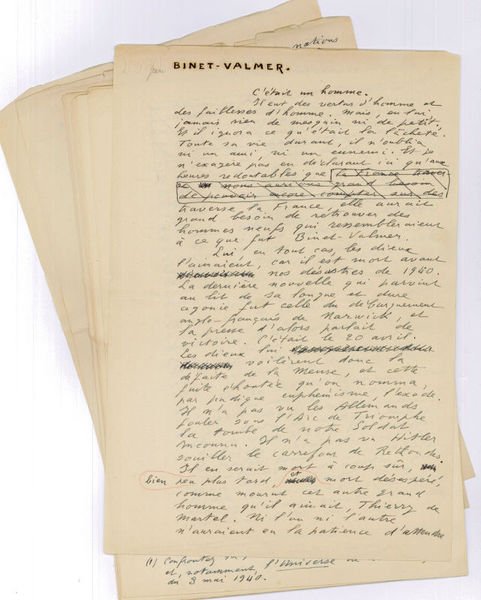 nations
BINET-VALMER.
C'était un homme.
Il eut des vertus d'homme et
des faiblesses d'homme. Mais, en lui,
jamais rien de mesquin ni de petit,
et il ignora ce qu'était la lâcheté.
Toute sa vie durant, il n'oublia
ni un ami, ni un ennemi. Et je
n'exagère pas en déclarant ici qu'aux
heures redoutables que la France traver
se nous aurions grand besoin
de pouvoir encore compter sur des
traverse la France, elle aurait
grand besoin de retrouver des
hommes neufs qui ressembleraient
à ce que fut Binet-Valmer.
Lui, en tout cas, les dieux
l'aimaient, car il est mort avant
nos désastres de 1940.
La dernière nouvelle qui parvint
au lit de sa longue et dure
agonie fut celle du débarquement
anglo-français de Narwick, et
la presse d'alors parlait de
victoire. C'était le 20 avril.
Les dieux lui
voilèrent donc la
défaite de la Meuse, et cette
fuite éhontée qu'on nomma,
par pudique euphémisme, l'exode.
Il n'a pas vu les Allemands
fouler sous l'Arc de Triomphe
la tombe de notre Soldat
Inconnu. Il n'a pas vu Hitler
souiller le carrefour de Rethondes.
Il en serait mort à coup sûr,
bien peu plus tard, et mort désespéré,
comme mourut cet autre grand
homme qu'il aimait, Thierry de
Martel. Ni l'un ni l'autre
n'auraient eu la patience d'attendre
(1) Confrontez
et, notamment, l'Univers
du 3 mai 1940.